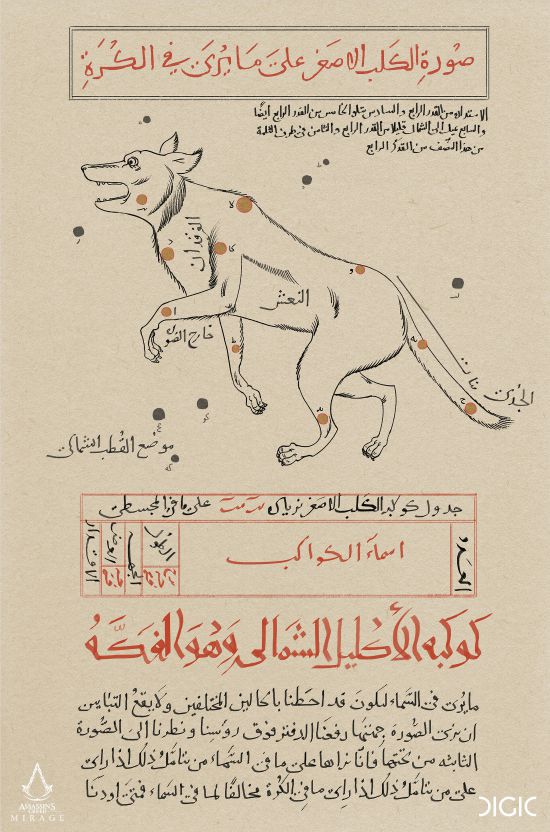 صورة الكلب الاصغر على ما يرى في الكرة
الاستداره من القدر الرابع والسادس يتلو الخامس من القدر الرابع ايضًا
والسابع يميل الى الشمال قليلا من القدر الرابع والثامن في طرف
من هذا النصف من القدر الرابع
الفرقدان
النعش
خارج الصورة
الجدي
موضع القطب الشمالي
جدول كوكبه الكلب الاصغر بزيادة على ما في المجسطي
العدد
اسماء الكواكب
الطول
الجهه
العرض
الاقدار
كوكبه الأكليل الشمالى وهو الفكه
ما يرى في السماء ليكون قد احطنا بالحالين المختلفين ولا يقع التباين
ان يرى الصورة جميعها رفعنا الدفتر فوق رؤسنا ونظرنا الى الصورة
الثانيه من تحتها فانا نراها على ما في السماء من يتامل ذلك اذا راى
على من يتامل ذلك اذا راى ما في الكرة مخالفًا لما في السماء فمتى اردنا
ASSASSIN'S
CREED
MIRAGE
DIGIC